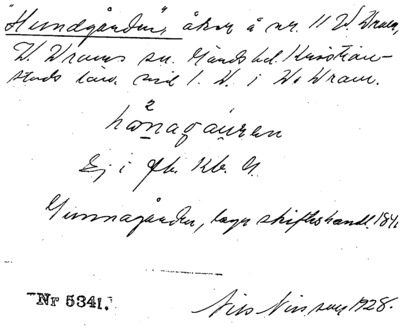 "Hundgården", åker å nr. 11 V. Vram,
V. Vrams sn. Gärds hd. Kristian-
stads län. vid 1. V. i V. Vram.
hònagåuren
Ej i
Gunnagården, laga skifteshandl. 184
Nr 5341.
Nils Nilsson 1928.